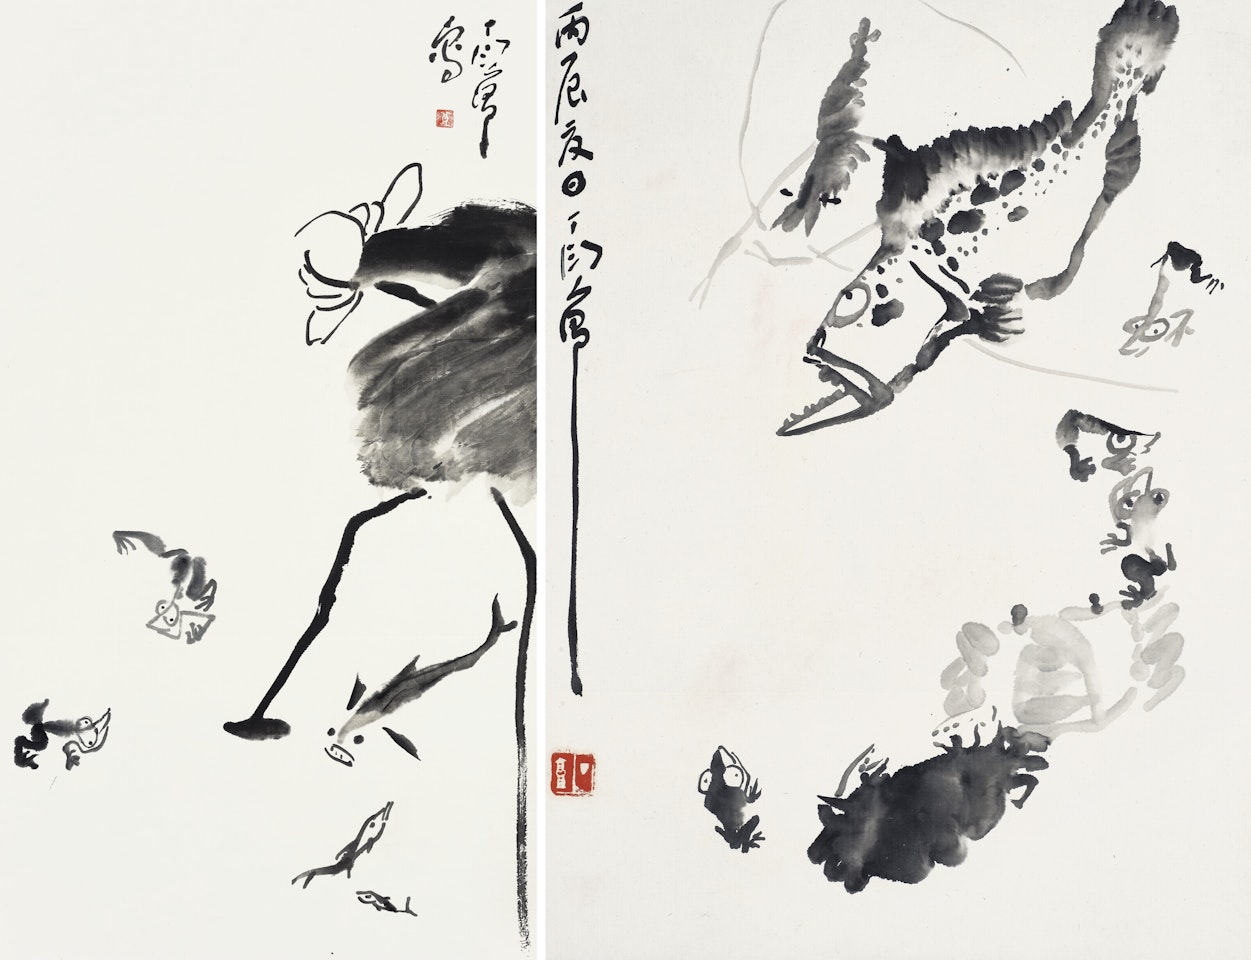 丁衍庸
寫
丙辰夏日丁衍庸